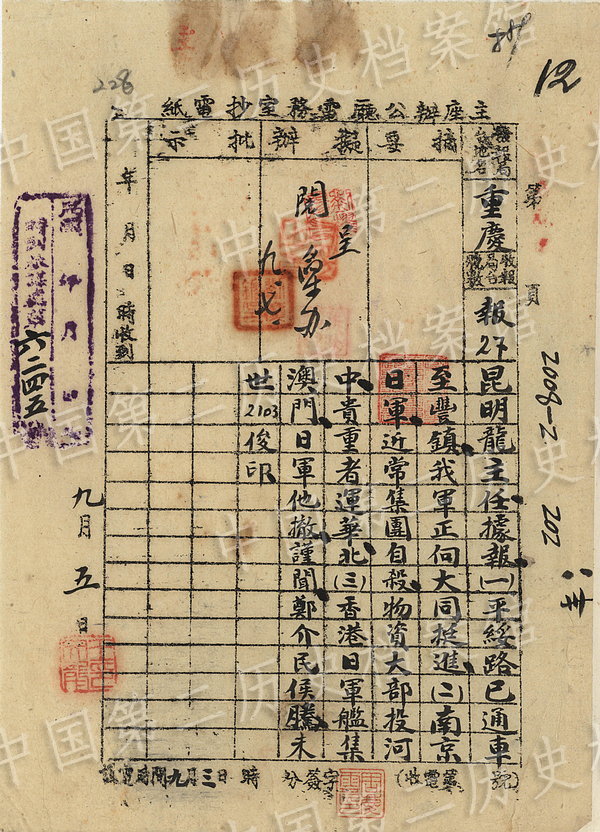 12
228
主座辦公廳電務室抄電紙
發報局台地名
重慶
收報局台號數
報27
第 頁
摘要
擬辦
批示
閱
呈
九、七、
年 月 日 時收到
昆明龍主任據報(一)平綏路已通車
至豐鎮我軍正向大同挺進(二)南京
日軍近常集團自殺物資大部投河
中貴重者運華北(三)香港日軍艦集
澳門日軍他撤謹聞鄭介民侯騰未
世2103俊印
六二四五
九月五日
2008-2 202
電時間九月三日 時 分簽字
(收電第 號)
中国第二历史档案馆